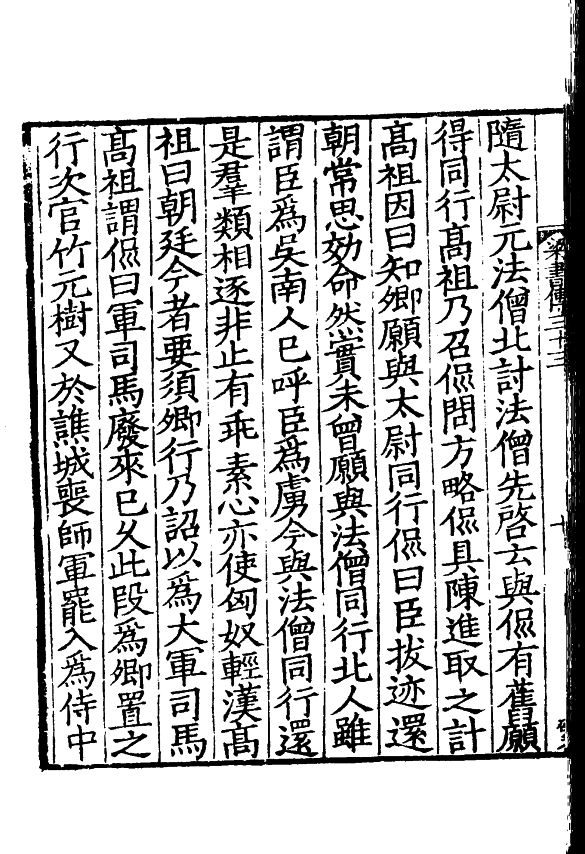 隨太尉元法僧北討法僧先啓云與侃有舊願
得同行髙祖乃召侃問方略侃具陳進取之計
髙祖因曰知卿願與太尉同行侃曰臣拔迹還
朝常思効命然實未曾願與法僧同行北人雖
謂臣爲吳南人已呼臣爲虜今與法僧同行還
是羣類相逐非止有乖素心亦使匈奴輕漢髙
祖曰朝廷今者要須卿行乃詔以爲大軍司馬
髙祖謂侃曰軍司馬廢來已久此段爲卿置之
行次官竹元樹又於譙城喪師軍罷入爲侍中
梁書傳三十三
十